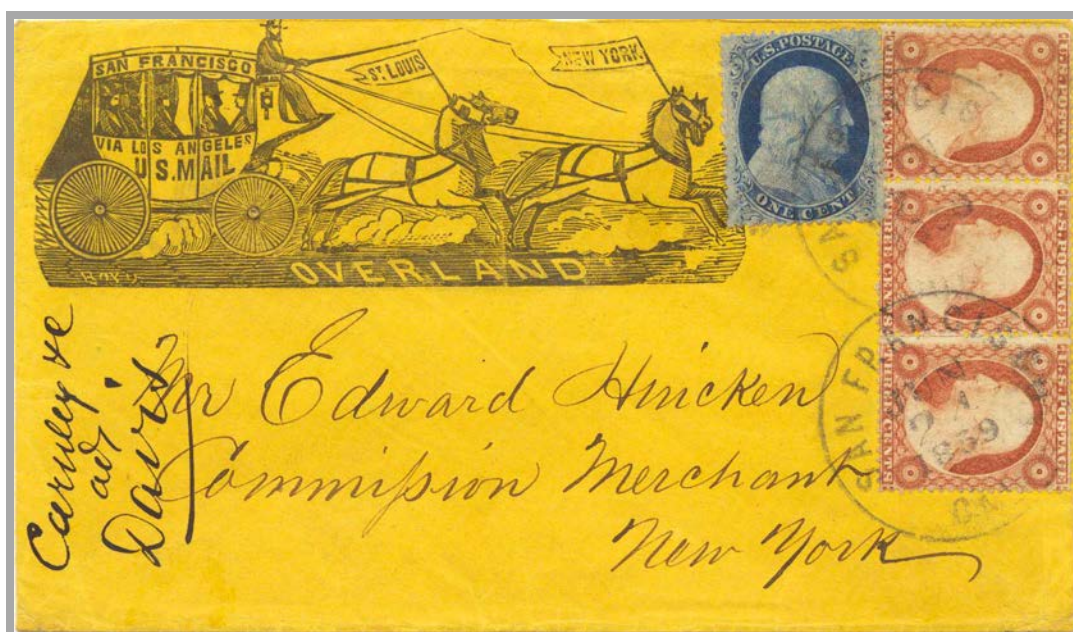 SAN FRANCISCO
VIA LOS ANGELES
U.S. MAIL
ST. LOUIS
NEW YORK
OVERLAND
U.S. POSTAGE
ONE CENT
U.S. POSTAGE
THREE CENTS
U.S. POSTAGE
THREE CENTS
U.S. POSTAGE
THREE CENTS
SAN FRANCISCO
SAN FRANCISCO
1859
CAL
Mr Edward Huicken
Commission Merchant
New York
Davis